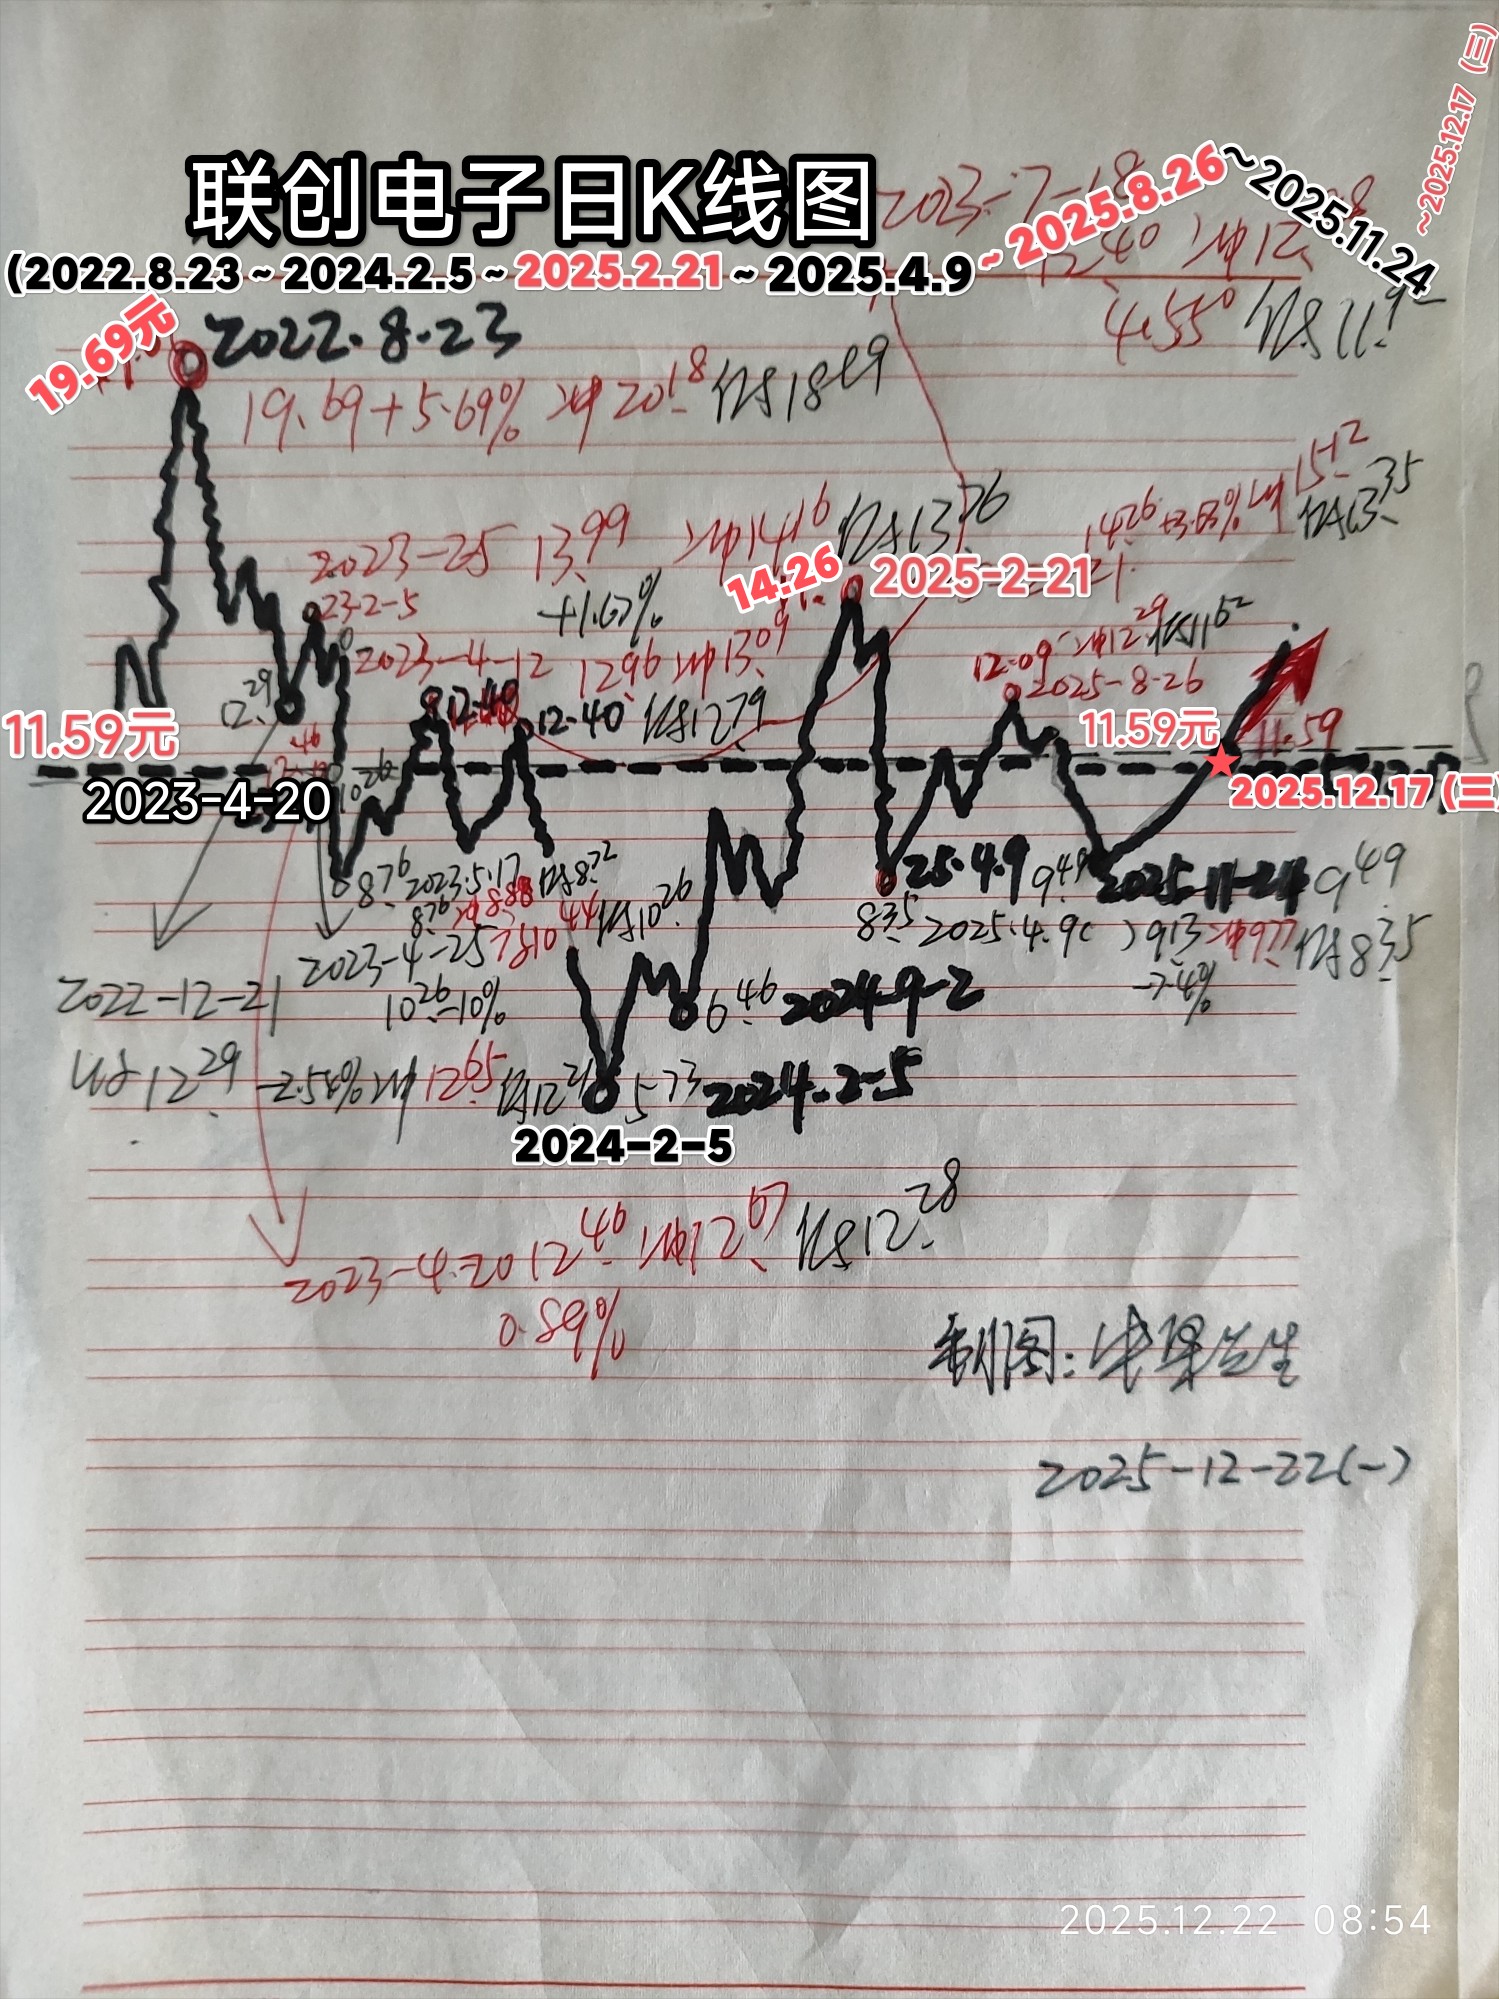 联创电子日K线图
(2022.8.23~2024.2.5~2025.2.21~2025.4.9~2025.8.26~2025.11.24
~2025.12.17 (三)
2023-7-18
12.40 冲12.
4.55% 低11.9
19.69元
2022.8.23
19.69+5.69% 冲20.18 低18.89
15.12
14.26+3.63%冲 低13.35
2023-2-5 13.99 冲14.16 低13.76
+1.67%
14.26
2025-2-21
23-2-5
2023-4-12 12.96 冲13.09
低12.79
12.09 冲12.29 低11.62
2025-8-26
12.29
12.40
12.40
11.59元
11.59元
11.59
2023-4-20
10.26
2025.12.17 (三)
8.76 2023.5.17 低8.72
8.76 冲8.88
25.4.9
9.49
2025-11-24 9.49
8.35 2025.4.9( )9.13冲9.77低8.35
-7.4%
2023-4-25 10.44 低10.26
10.26-10%
2022-12-21
12.29 -2.54%冲12.65 低12.21
6.46 2024-9-2
5.73 2024.2.5
2024-2-5
2023-4-20 12.46 冲12.67 低12.28
0.89%
制图:
2025-12-22(一)
2025.12.22 08:54